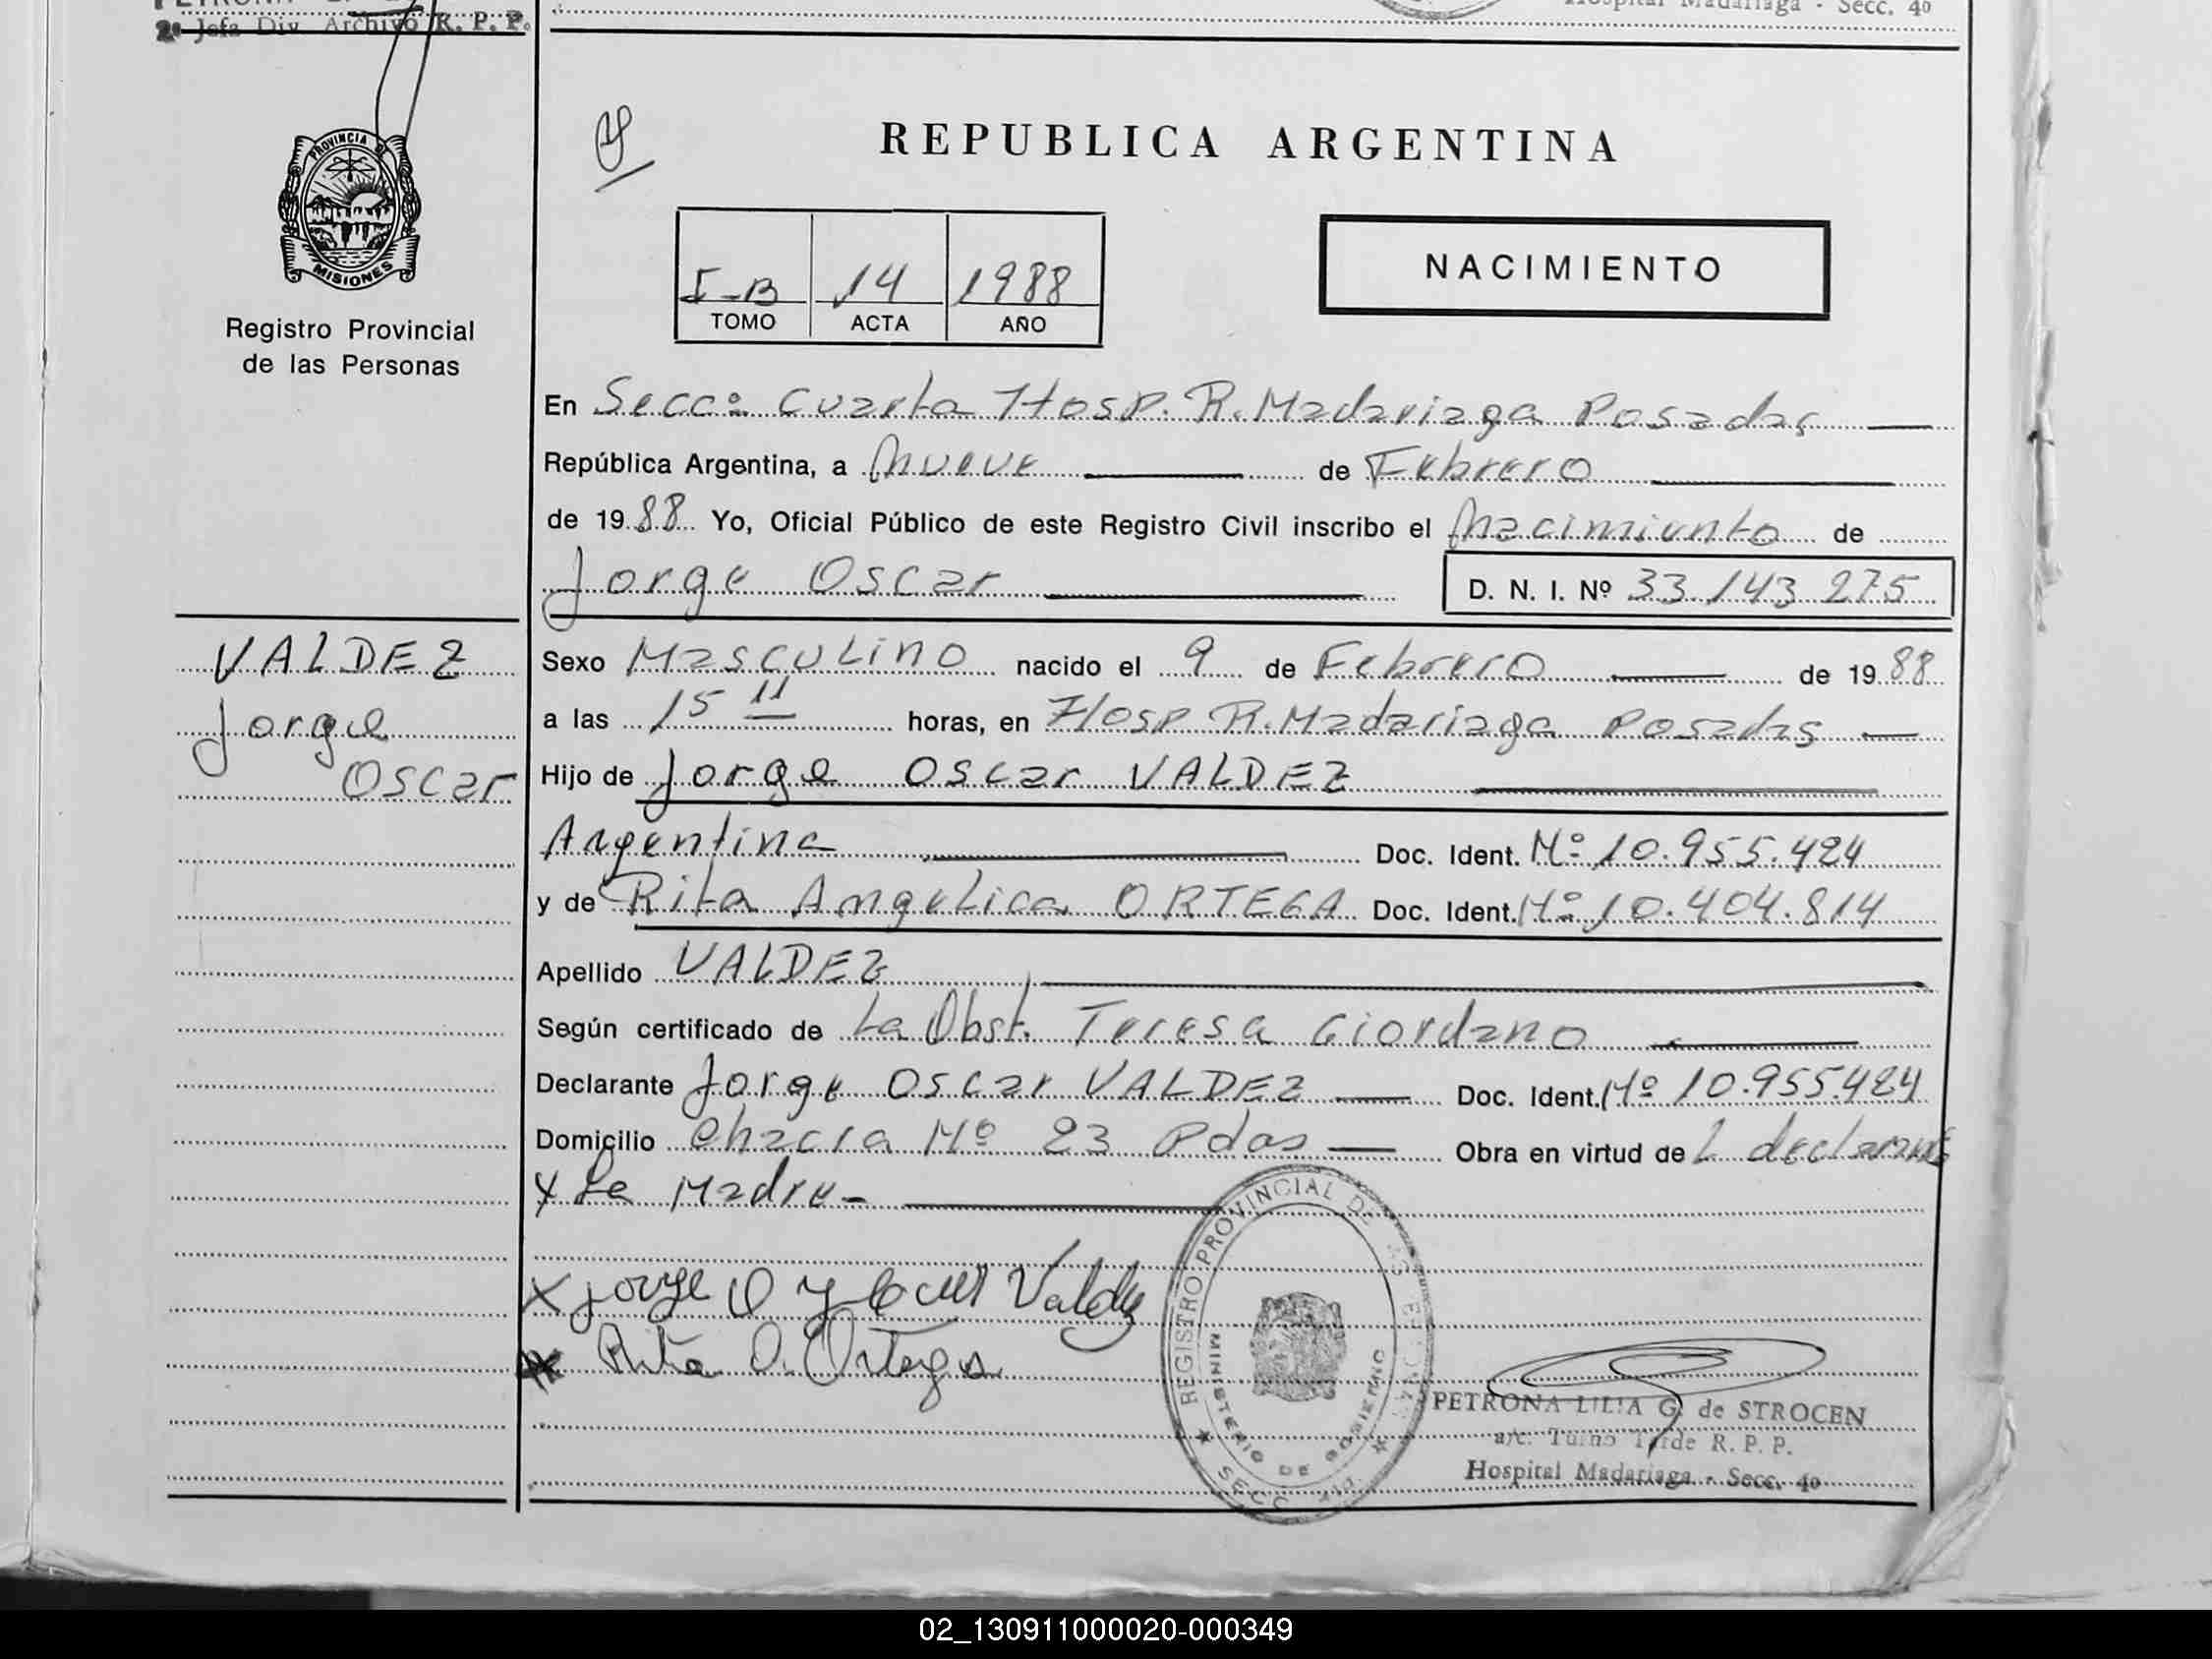 2º Jefa Div. Archivo R. P. P.
Hospital Madariaga - Secc. 4º
PROVINCIA DE
MISIONES
Registro Provincial
de las Personas
REPUBLICA ARGENTINA
I-B 14 1988
TOMO ACTA AÑO
NACIMIENTO
En Secc: Cuarta Hosp. R. Madariaga Posadas
República Argentina, a Nueve de Febrero
de 1988 Yo, Oficial Público de este Registro Civil inscribo el Nacimiento de
Jorge Oscar D. N. I. Nº 33.143.275
VALDEZ
Jorge
Oscar
Sexo Masculino nacido el 9 de Febrero de 1988
a las 15 11 horas, en Hosp R. Madariaga Posadas
Hijo de Jorge Oscar VALDEZ
Argentina Doc. Ident. Nº 10.955.424
y de Rita Angelica ORTEGA Doc. Ident. Nº 10.404.814
Apellido VALDEZ
Según certificado de La Obst. Teresa Giordano
Declarante Jorge Oscar VALDEZ Doc. Ident. Nº 10.955.424
Domicilio Chacra Nº 23 Pdas Obra en virtud de L declarante
y La Madre-
x Jorge O Valdez
x Rita O. Ortega
REGISTRO PROVINCIAL DE LAS PERSONAS
MINISTERIO DE GOBIERNO
SECC. 4ta.
PETRONA LILIA G. de STROCEN
a/c. Turno Tarde R. P. P.
Hospital Madariaga - Secc. 4º
02_130911000020-000349